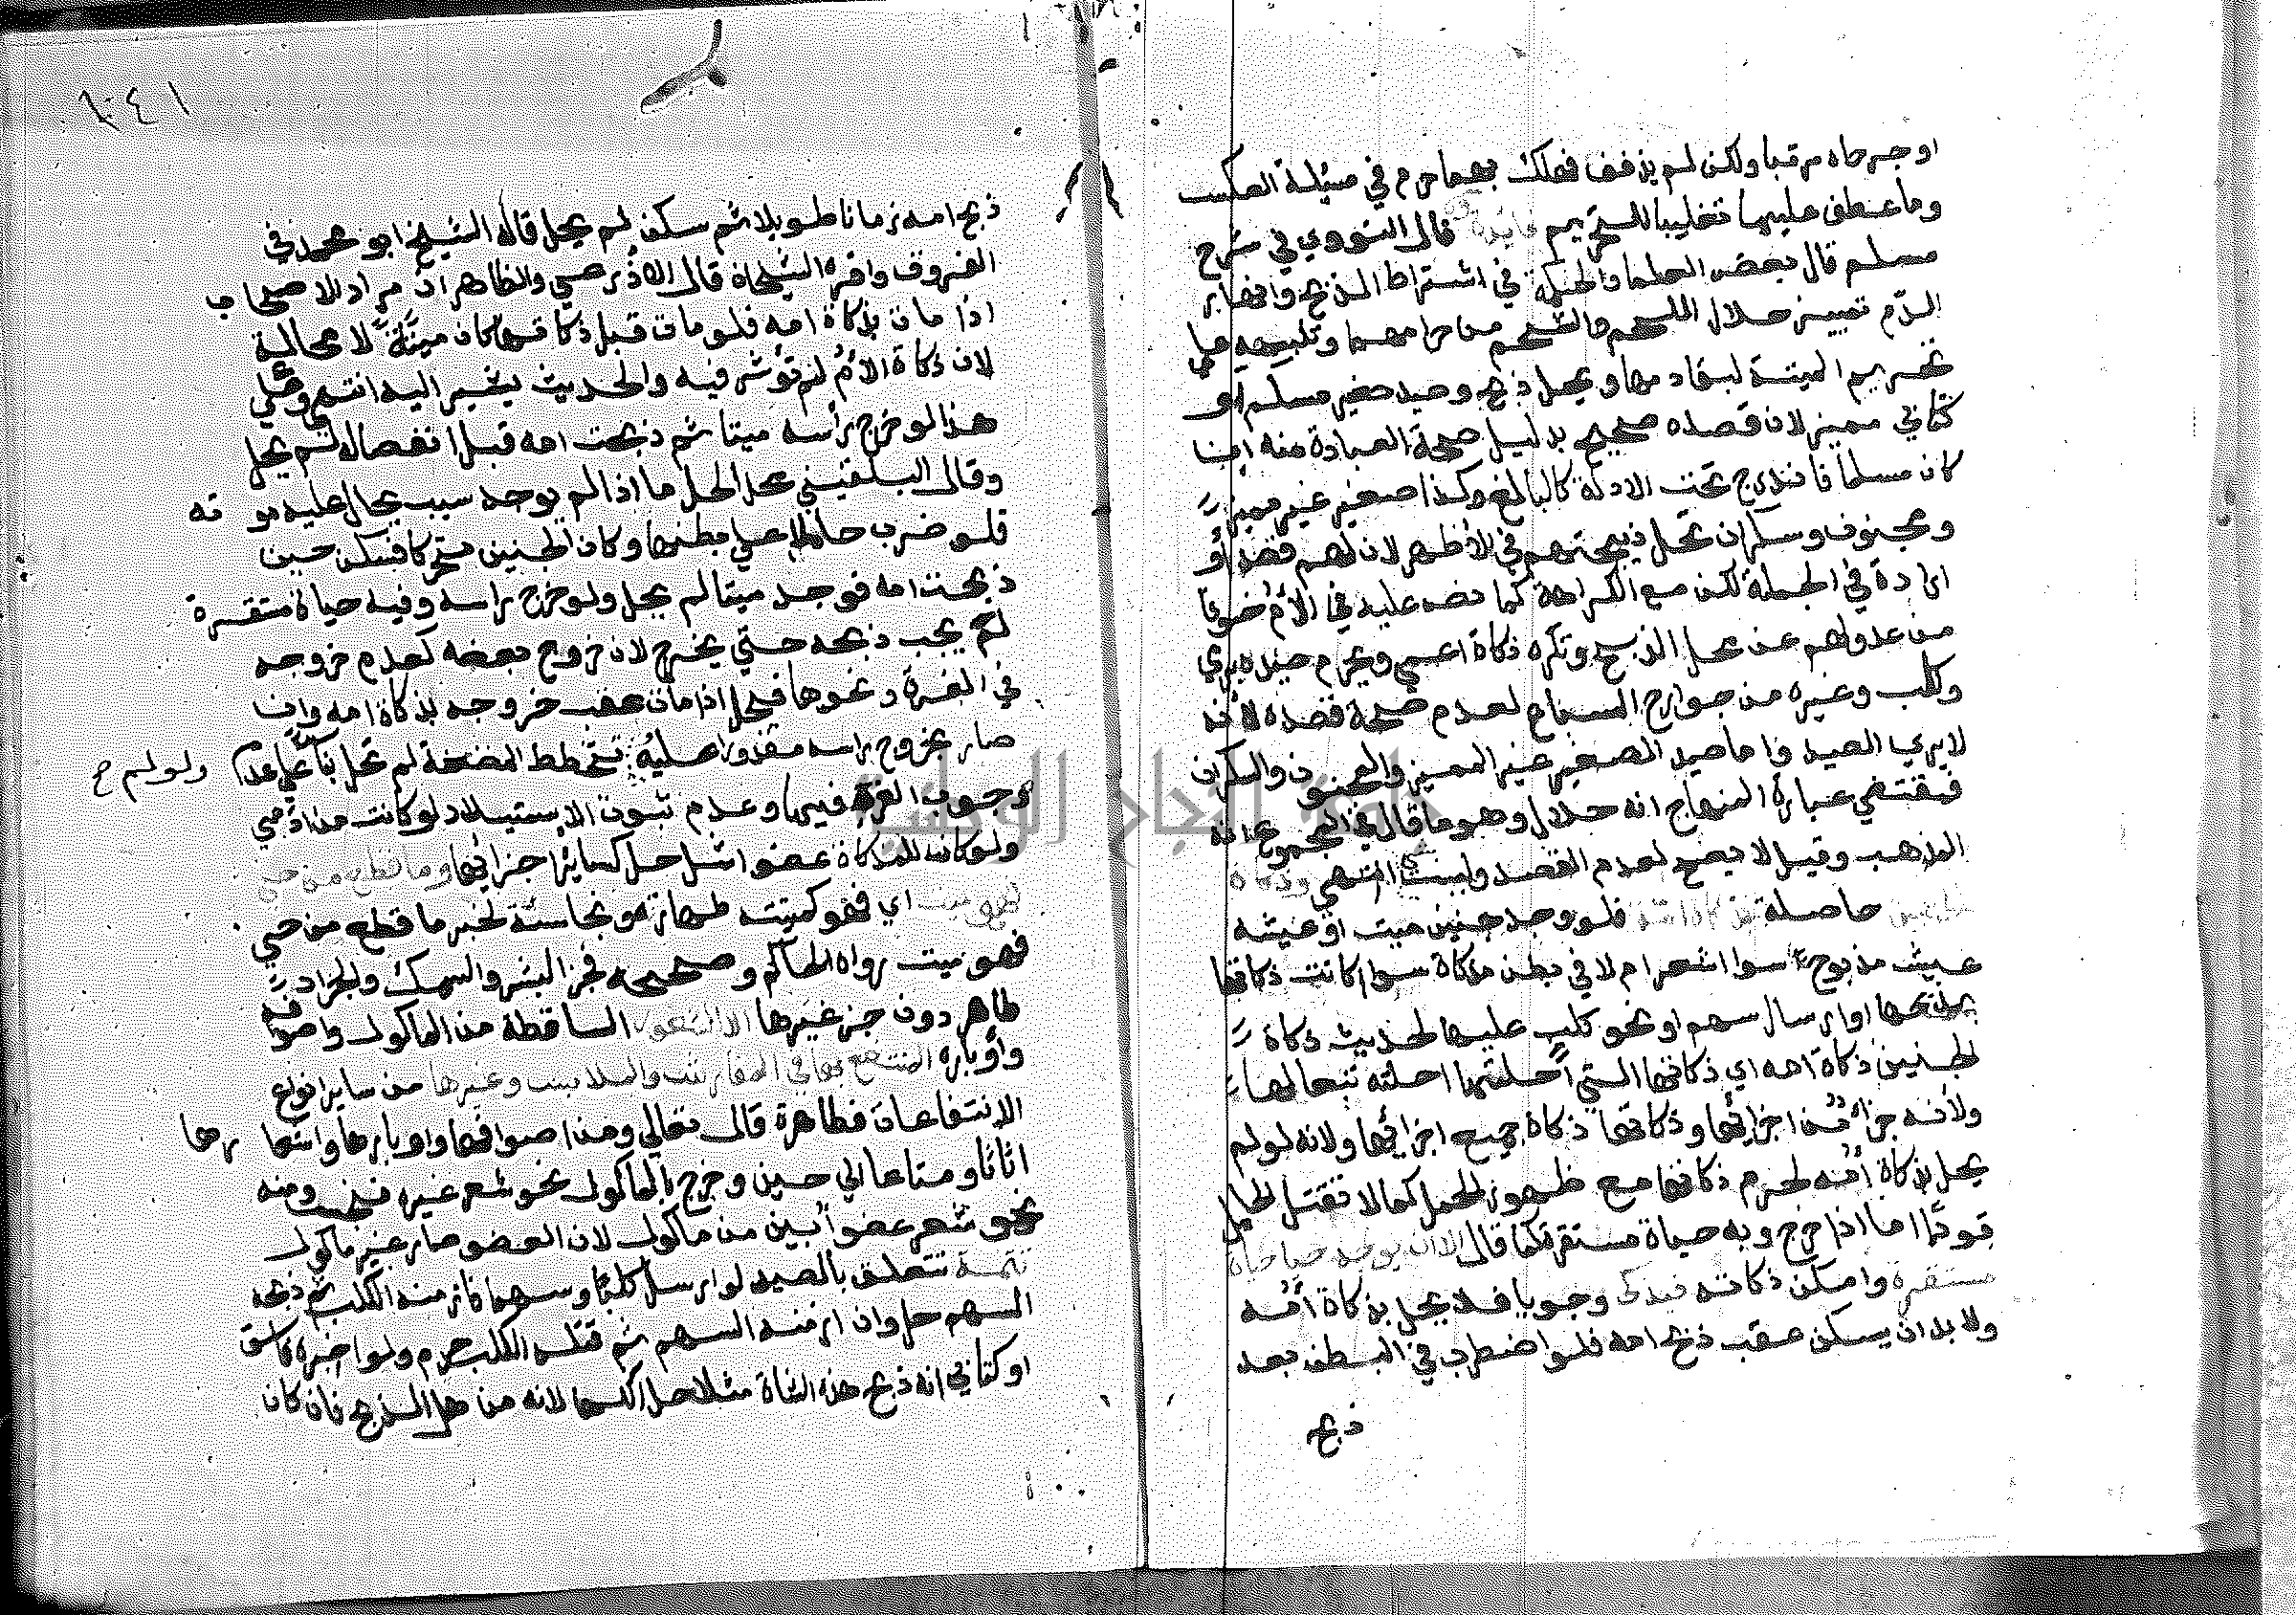 او جرحاه مرتبا ولكن لم يذفف فهلك بهما حرم في مسئلة العكس
وما عطف عليها تغليبا للتحريم فائدة قال النووي في شرح
مسلم قال بعض العلما والحكمة في اشتراط الذبح وانهار
الدم تمييز حلال اللحم والشحم من حرامهما وتنبيه على
تحريم الميتة لبقا دمها ويحل ذبح وصيد صغير مسلم او
كتابي مميز لان قصده صحيح بدليل صحة العبادة منه ان
كان مسلما فاندرج تحت الادلة كالبالغ وكذا صغير غير مميز
ومجنون وسكران تحل ذبيحتهم في الأظهر لان لهم قصدا و
ارادة في الجملة لكن مع الكراهة كما نص عليه في الأم خوفا
من عدولهم عن محل الذبح وتكره ذكاة اعمى ويحرم صيده برمي
وكلب وغيره من جوارح السباع لعدم صحة قصده لأنه
لا يرى الصيد واما صيد الصغير غير المميز والمجنون والسكران
فمقتضي عبارة المنهاج انه حلال وهو ما قال في المجموع انه
المذهب وقيل لا يصح لعدم القصد وليس بشي انتهى وذكاة
الجنين حاصلة بذكاة امه فلو وجد جنين ميت او عيشه
عيش مذبوح سوا اشعر ام لا في بطن مذكاة سوا كانت ذكاتها
بذبحها او ارسال سهم او نحو كلب عليها لحديث ذكاة
الجنين ذكاة امه اي ذكاتها التي أحلتها احلته تبعا لها
ولأنه جزء من اجزائها وذكاتها ذكاة جميع اجزائها ولانه لو لم
يحل بذكاة أمه لحرم ذكاتها مع ظهور الحمل كما لا تقتل الحامل
قودا اما اذا خرج وبه حياة مستقرة كما قال الا ان يوجد حيا حياة
مستقرة وامكن ذكاته فيذكى وجوبا فلا يحل بذكاة أمه
ولا بد ان يسكن عقب ذبح امه فلو اضطرب في البطن بعد
ذبح
١٤٦
ذبح امه زمانا طويلا ثم سكن لم يحل قاله الشيخ ابو محمد في
الفروق واقره الشيخان قال الاذرعي والظاهر ان مراد الاصحاب
اذا مات بذكاة امه فلو مات قبل ذكاتها كان ميتة لا محالة
لان ذكاة الأم لم تؤثر فيه والحديث يشير اليه انتهى وعلى
هذا لو خرج رأسه ميتا ثم ذبحت امه قبل انفصاله لم يحل
وقال البلقيني محل الحل ما اذا لم يوجد سبب يحال عليه موته
فلو ضرب حاملا على بطنها وكان الجنين متحركا فسكن حين
ذبحت امه فوجد ميتا لم يحل ولو خرج راسه وفيه حياة مستقرة
لم يجب ذبحه حتى يخرج لان خروج بعضه كعدم خروجه
في الغرة ونحوها فيحل اذا مات عقب خروجه بذكاة امه وان
صار بخروج راسه مقدورا عليه ولو لم تتخطط المضغة لم تحل بناء على عدم
وجوب الغرة فيها وعدم ثبوت الاستيلاد لو كانت من ادمي
ولو كان للمذكاة عضو اشل حل كسائر اجزائها وما قطع من حي
فهو ميت اي فهو كميتته طهارة ونجاسة لخبر ما قطع من حي
فهو ميت رواه الحاكم وصححه فجزء البشر والسمك والجراد
طاهر دون جزء غيرها الا الشعور الساقطة من الماكول واصوافه
وأوباره المنتفع بها في المفارش والملابس وغيرها من ساير انواع
الانتفاعات فطاهرة قال تعالى ومن اصوافها واوبارها واشعارها
اثاثا ومتاعا الى حين وخرج بالماكول نحو شعر غيره فنجس ومنه
نحو شعر عضو أبين من ماكول لان العضو صار غير ماكول
تتمة تتعلق بالصيد لو ارسل كلبا وسهما فازمنه الكلب ثم ذبحه
السهم حل وان ازمنه السهم ثم قتله الكلب حرم ولو اخبره فاسق
او كتابي انه ذبح هذه الشاة مثلا حل اكلها لانه من اهل الذبح فان كان